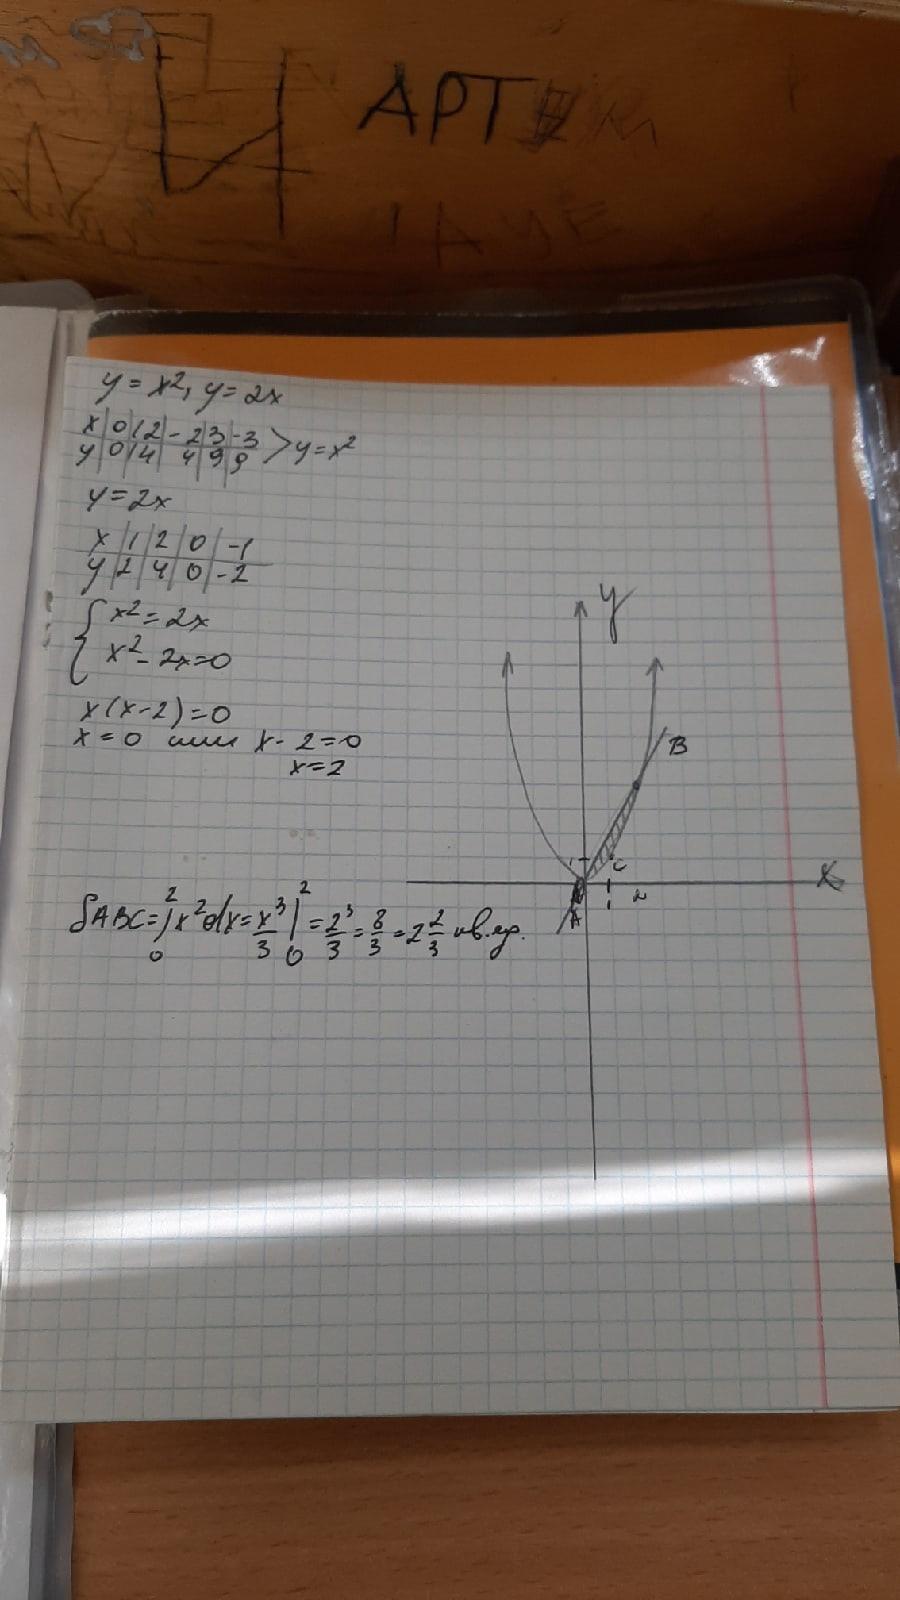 АРТ
y = x², y = 2x
x 0 1 2 -2 3 -3
y 0 1 4 4 9 9 > y = x²
y = 2x
x 1 2 0 -1
y 2 4 0 -2
{ x² = 2x
x² - 2x = 0
x(x-2) = 0
x = 0 или x - 2 = 0
x = 2
y
B
C
x
2
A
SABC = ∫₀² x² dx = x³/3 |₀² = 2³/3 = 8/3 = 2 2/3 кв.ед.